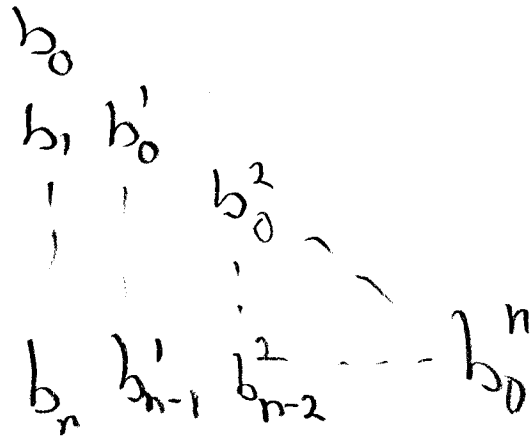 b₀
b₁ b₀¹
b₀²
bₙ b¹ₙ₋₁ b²ₙ₋₂ b₀ⁿ